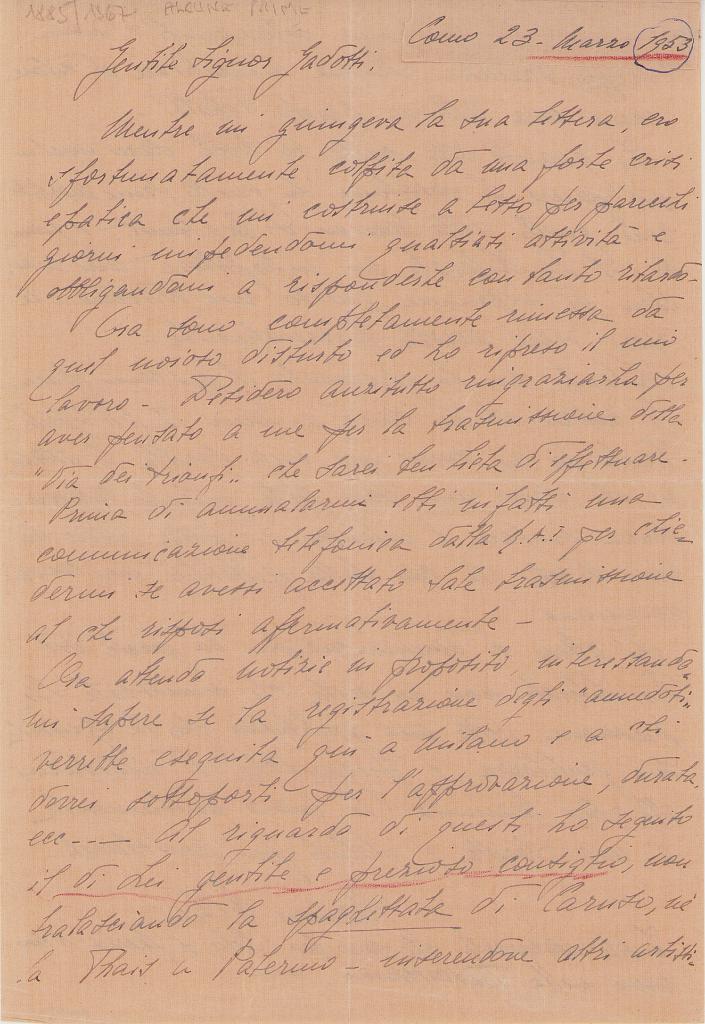 1885/1967 ALCUNE PRIME
Como 23 - Marzo 1953
Gentile Signor Gadotti.
Mentre mi giungeva la sua lettera, ero
sfortunatamente colpita da una forte crisi
epatica che mi costrinse a letto per parecchi
giorni impedendomi qualsiasi attività e
obbligandomi a risponderle con tanto ritardo -
Ora sono completamente rimessa da
quel noioso disturbo ed ho ripreso il mio
lavoro - Desidero anzitutto ringraziarla per
aver pensato a me per la trasmissione della
"Via dei trionfi" che sarei ben lieta di effettuare.
Prima di ammalarmi ebbi infatti una
comunicazione telefonica dalla R.A.I per chie=
dermi se avessi accettato tale trasmissione
al che risposi affermativamente -
Ora attendo notizie in proposito, interessando
mi sapere se la registrazione degli "annedoti"
verrebbe eseguita quì a Milano e a chi
dovrei sottoporli per l'approvazione, durata,
ecc --- Al riguardo di questi ho seguito
il di Lei gentile e prezioso consiglio, non
tralasciando la spaghettata di Caruso, nè
la Thais a Palermo - inserendone altri artisti-